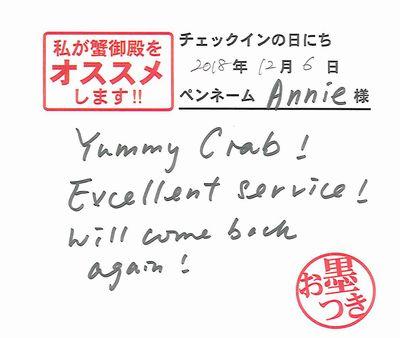 私が蟹御殿を
オススメ
します!!
チェックインの日にち
2018年 12月 6日
ペンネーム Annie 様
Yummy Crab!
Excellent service!
Will come back
again!
お墨
つき